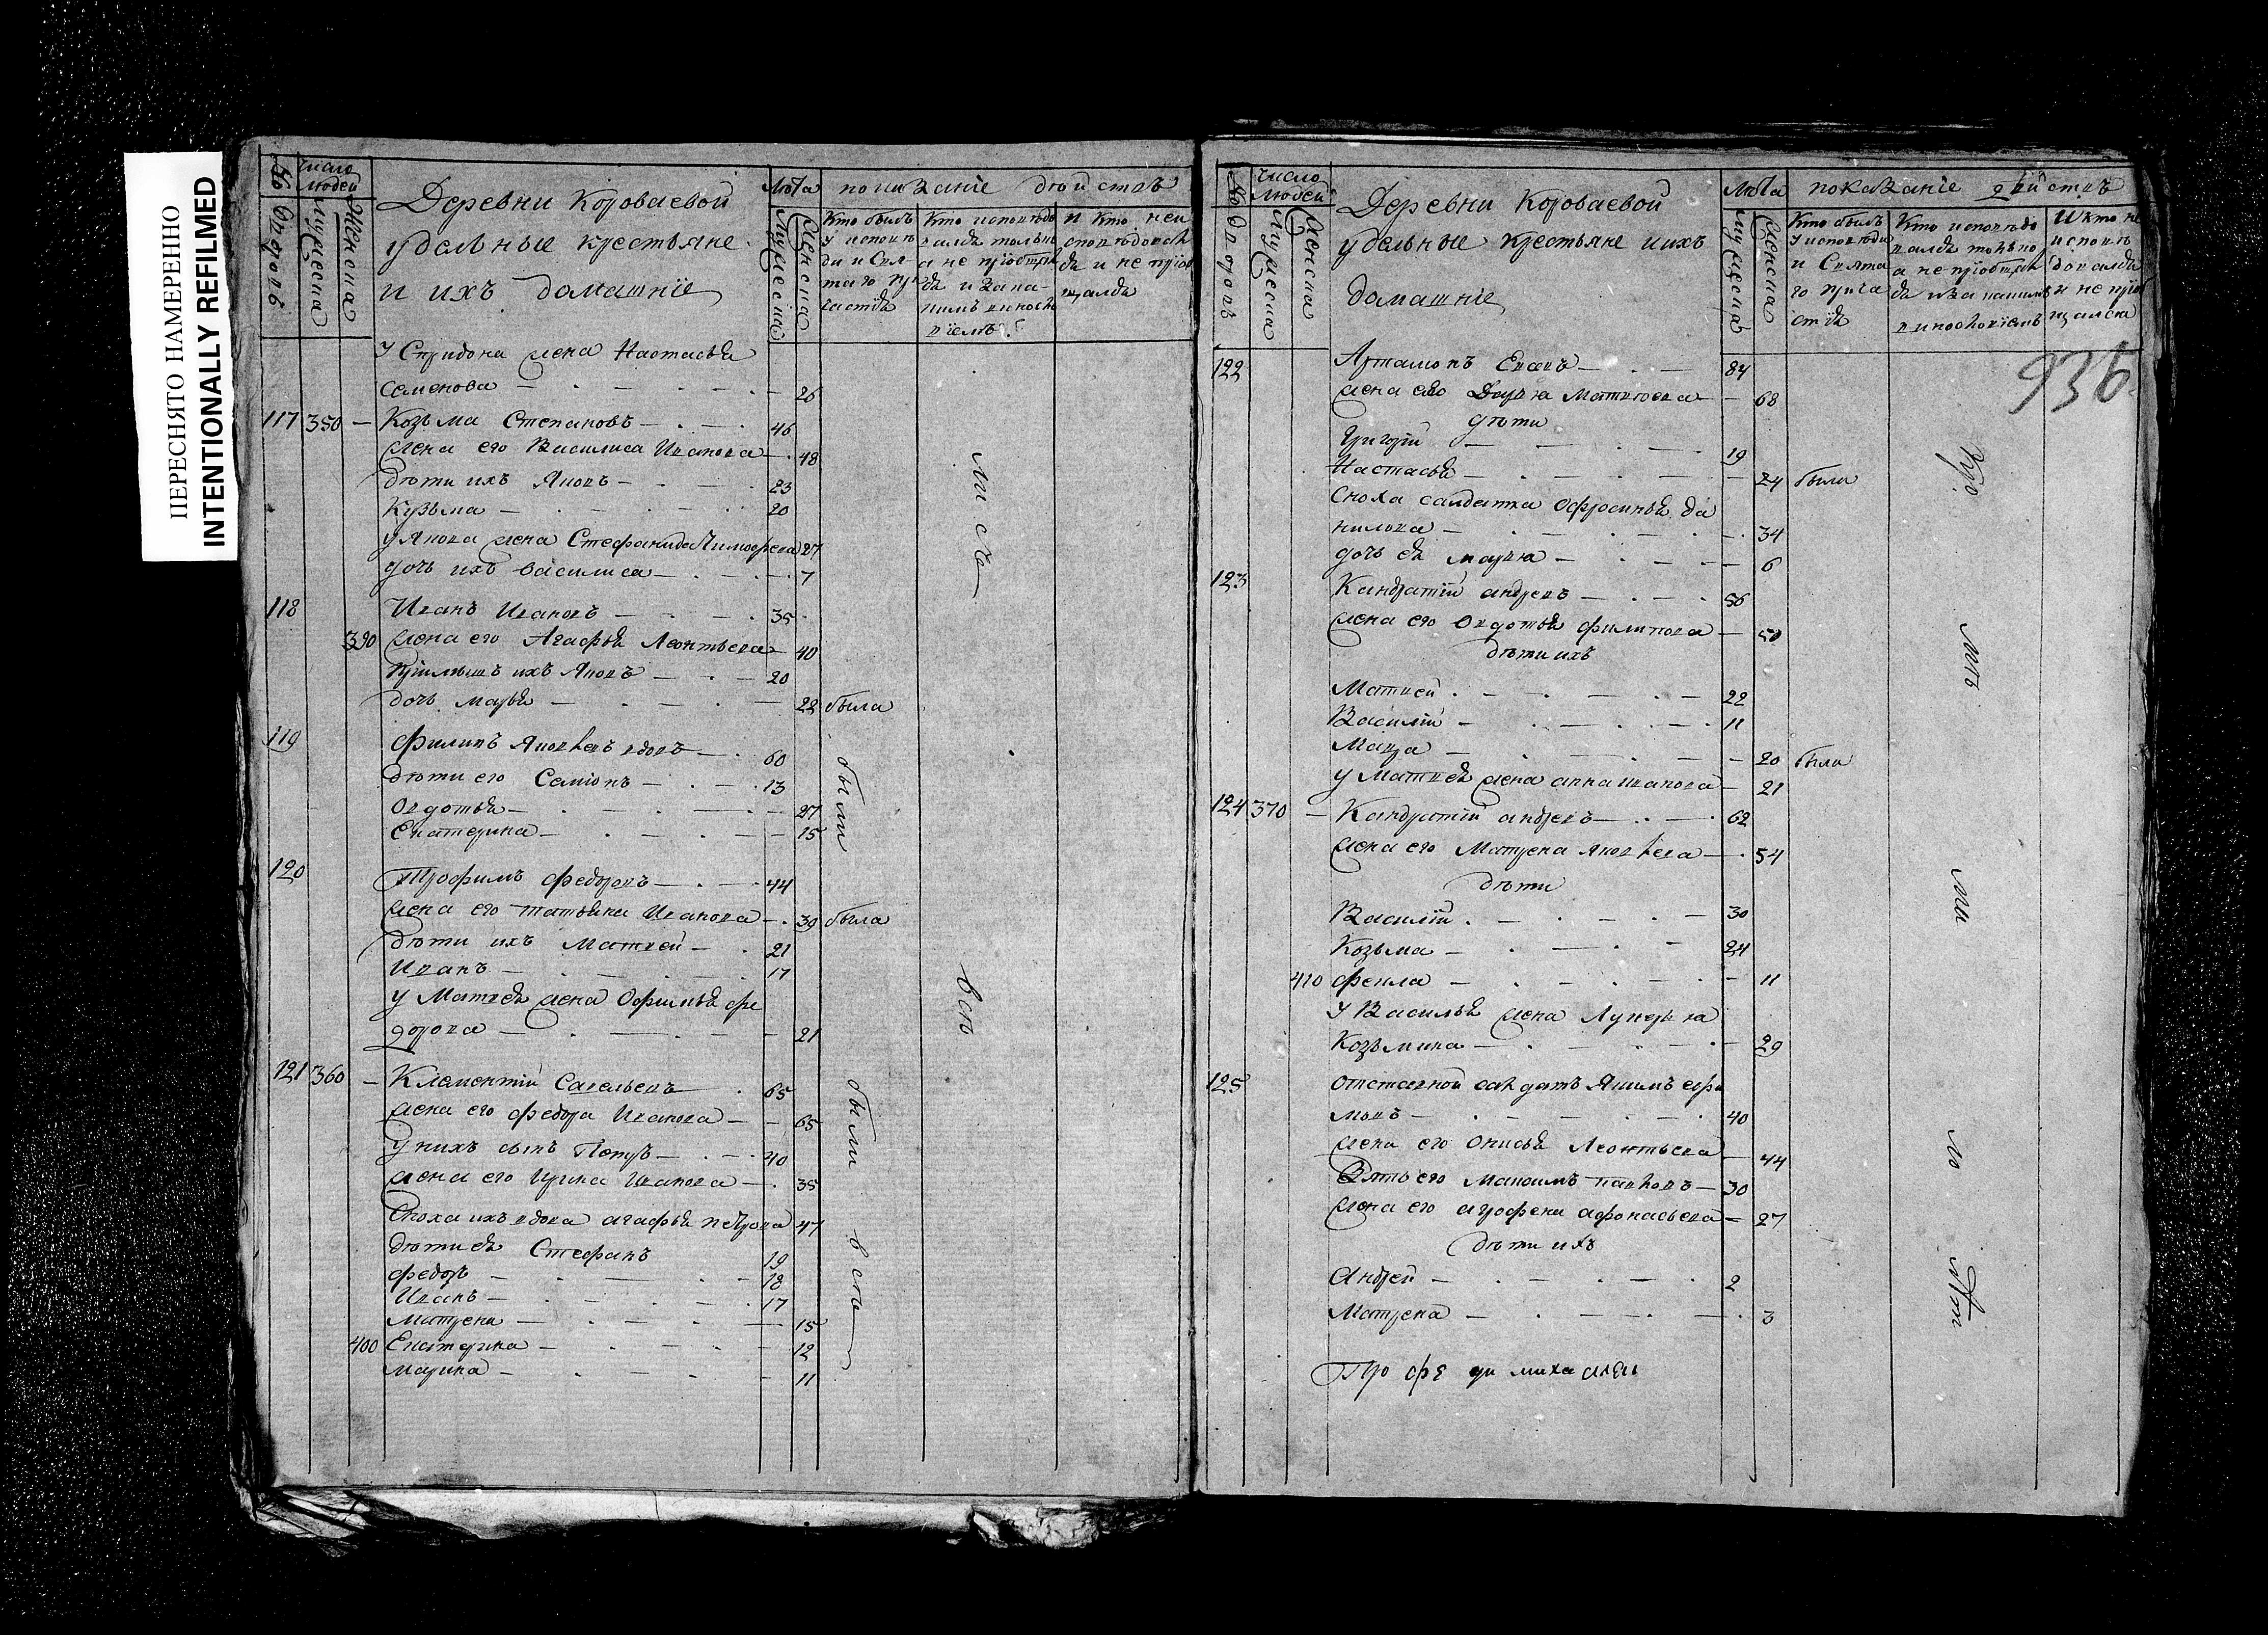 ПЕРЕСНЯТО НАМЕРЕННО
INTENTIONALLY REFILMED
№ дворовъ
Число людей
Мужеска
Женска
Деревни Короваевой
удельные крестьяне
и ихъ домашнiе
Лета
Мужеска
Женска
показанiе действъ
Кто былъ у исповеди и святаго причастiя
Кто исповедовался только а не прiобщился и за какимъ винословiемъ
И кто не исповедовался и не прiобщался
У Спиридона жена Настасья
Семенова — 26
117 350 — Козьма Степановъ — 46
жена его Василиса Иванова — 48
дети ихъ Яковъ — 23
Кузьма — 20
у Якова жена Стефанида Тимофеева 27
дочь ихъ василиса — 7
118 Иванъ Ивановъ — 35
390 жена его Агафья Леонтьева — 40
Прiимышъ ихъ Яковъ — 20
дочь марья — 22 была
119 Филипъ Яковлевъ вдовъ — 60
дети его Семiонъ — 13
Овдотья — 27
Екатерина — 15
120 Трофимъ федоровъ — 44
жена его татьяна Иванова — 39 была
дети ихъ Матвей — 21
Иванъ — 17
У Матвея жена Офимья фе
дорова — 21
121 360 — Клементiй Савельевъ 65
жена его федора Иванова — 65
У нихъ сынъ Петръ — 40
жена его Ирина Иванова — 35
Сноха ихъ вдова агафья петрова 47
дети ея Стефанъ 19
федоръ — 18
Иванъ — 17
Матрена — 15
400 Екатерина — 12
Марина — 11
были
все
были
все
№ дворовъ
Число людей
Мужеска
Женска
Деревни Короваевой
удельные крестьяне и ихъ
домашнiе
Лета
Мужеска
Женска
показанiе действъ
Кто былъ у исповеди и Святаго причастiя
Кто исповедовался только а не прiобщался и за какимъ винословiемъ
И кто не исповедовался и не прiобщался
936
122 Артамонъ Евсевъ — 84
жена его Дарья Матвеева — 68
дети
Григорiй — 19
Настасья — 24 была
Сноха салдатка Офросинья Да
нилова — 34
дочь ея марья — 6
123 Кандратiй андреевъ — 56
жена его Овдотья филипова — 50
дети ихъ
Матвей — 22
Василiй — 11
Мавра — 20 была
у Матвея жена анна иванова — 21
124 370 — Кандратiй андреевъ — 62
жена его Матрена яковлева — 54
дети
Василiй — 30
Козьма — 24
410 фекла — 11
У Василья жена Лукерья
Козьмина — 29
125 отставной салдатъ Якимъ ефи
мовъ — 40
жена его Онисья Леонтьева 44
Зять его Максимъ павловъ — 30
жена его агрофена афонасьева — 27
дети ихъ
Андрей — 2
Матрена — 3